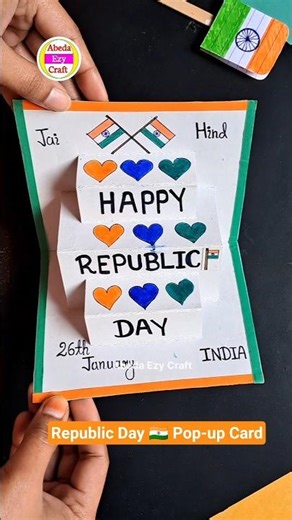 Abeda
Ezy
Craft
Jai Hind
HAPPY
REPUBLIC
DAY
26th January
INDIA
Abeda Ezy Craft
Republic Day 🇮🇳 Pop-up Card